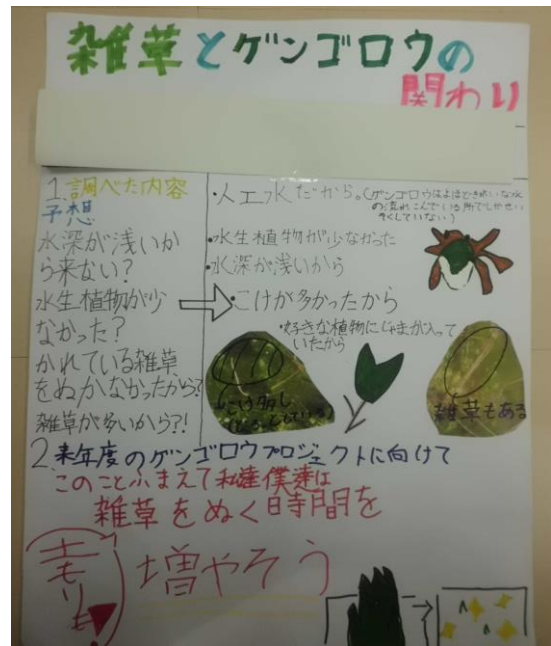 雑草とゲンゴロウの
関わり
1.調べた内容
予想
水深が浅いか
ら来ない?
水生植物が少
なかった?
かれている雑草
をぬかなかったから?
雑草が多いから?!
・人工水だから。(ゲンゴロウはよほどきれいな水
の流れこんでいる所でしかせい
そくしていない)
・水生植物が少なかった
・水深が浅いから
・こけが多かったから
・好きな植物にじゃまが入って
いたから
こけ多し
雑草もある
2来年度のゲンゴロウプロジェクトに向けて
このことふまえて私達僕達は
雑草をぬく時間を
増やそう